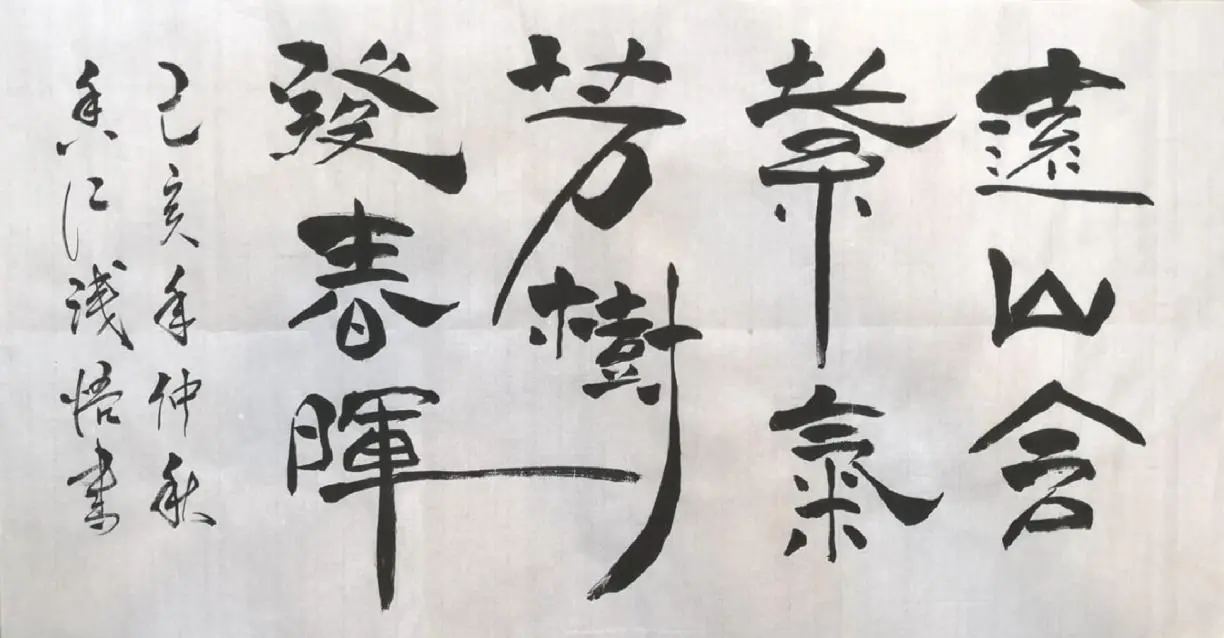 遠山含
紫氣
芳樹
發春暉
己亥年仲秋
香江淺悟書